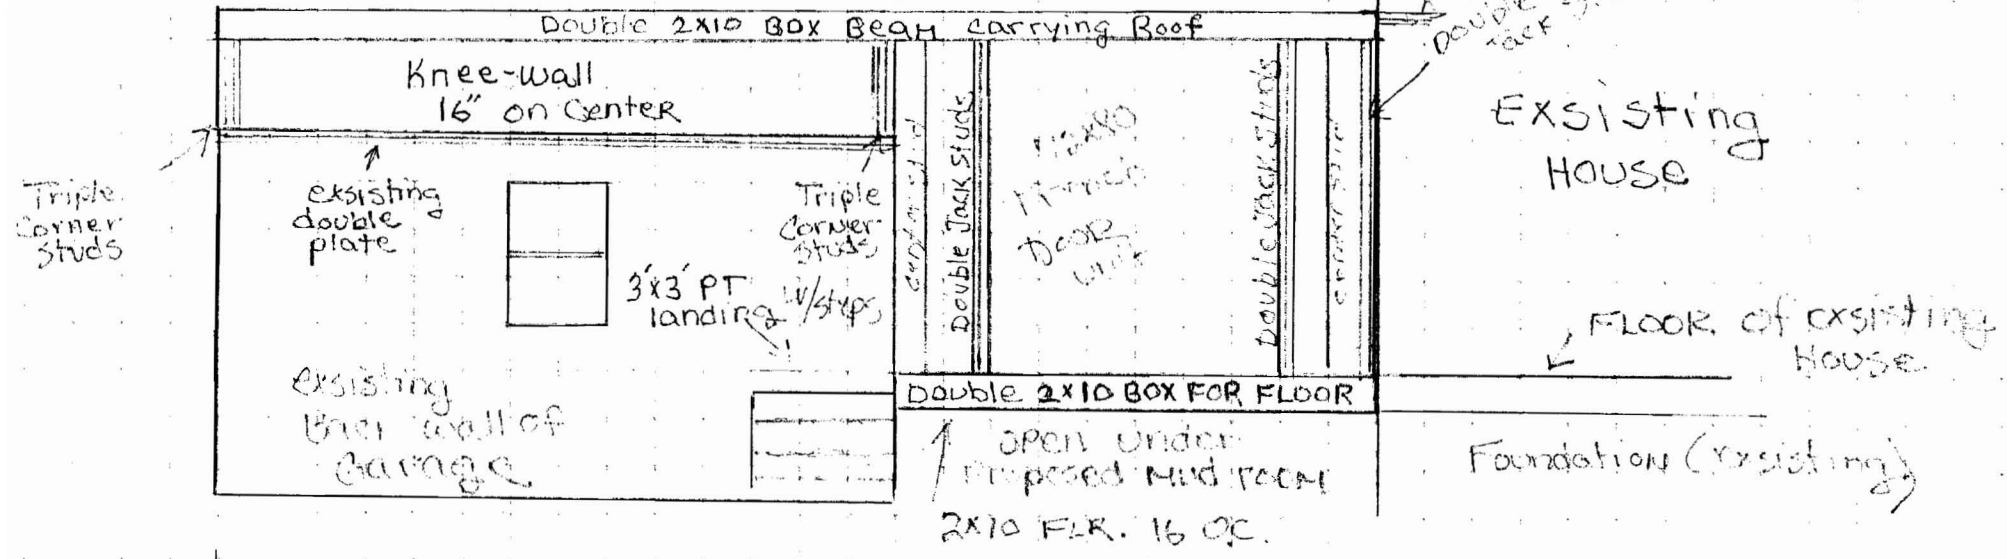 Double 2x10 BOX BEAM carrying Roof
Double
Jack
Knee-wall
16" on Center
EXSISting
HOUSE
Triple
Corner
Studs
exsisting
double
plate
Triple
Corner
Studs
3'x3' PT
landing w/steps
Double Jack Studs
Door
unit
Double Jack Studs
corner stud
FLOOR of exsisting
House
exsisting
wall of
Garage
Double 2x10 BOX FOR FLOOR
open under
Proposed Mud room
2x10 FLR. 16 O.C.
Foundation (exsisting)